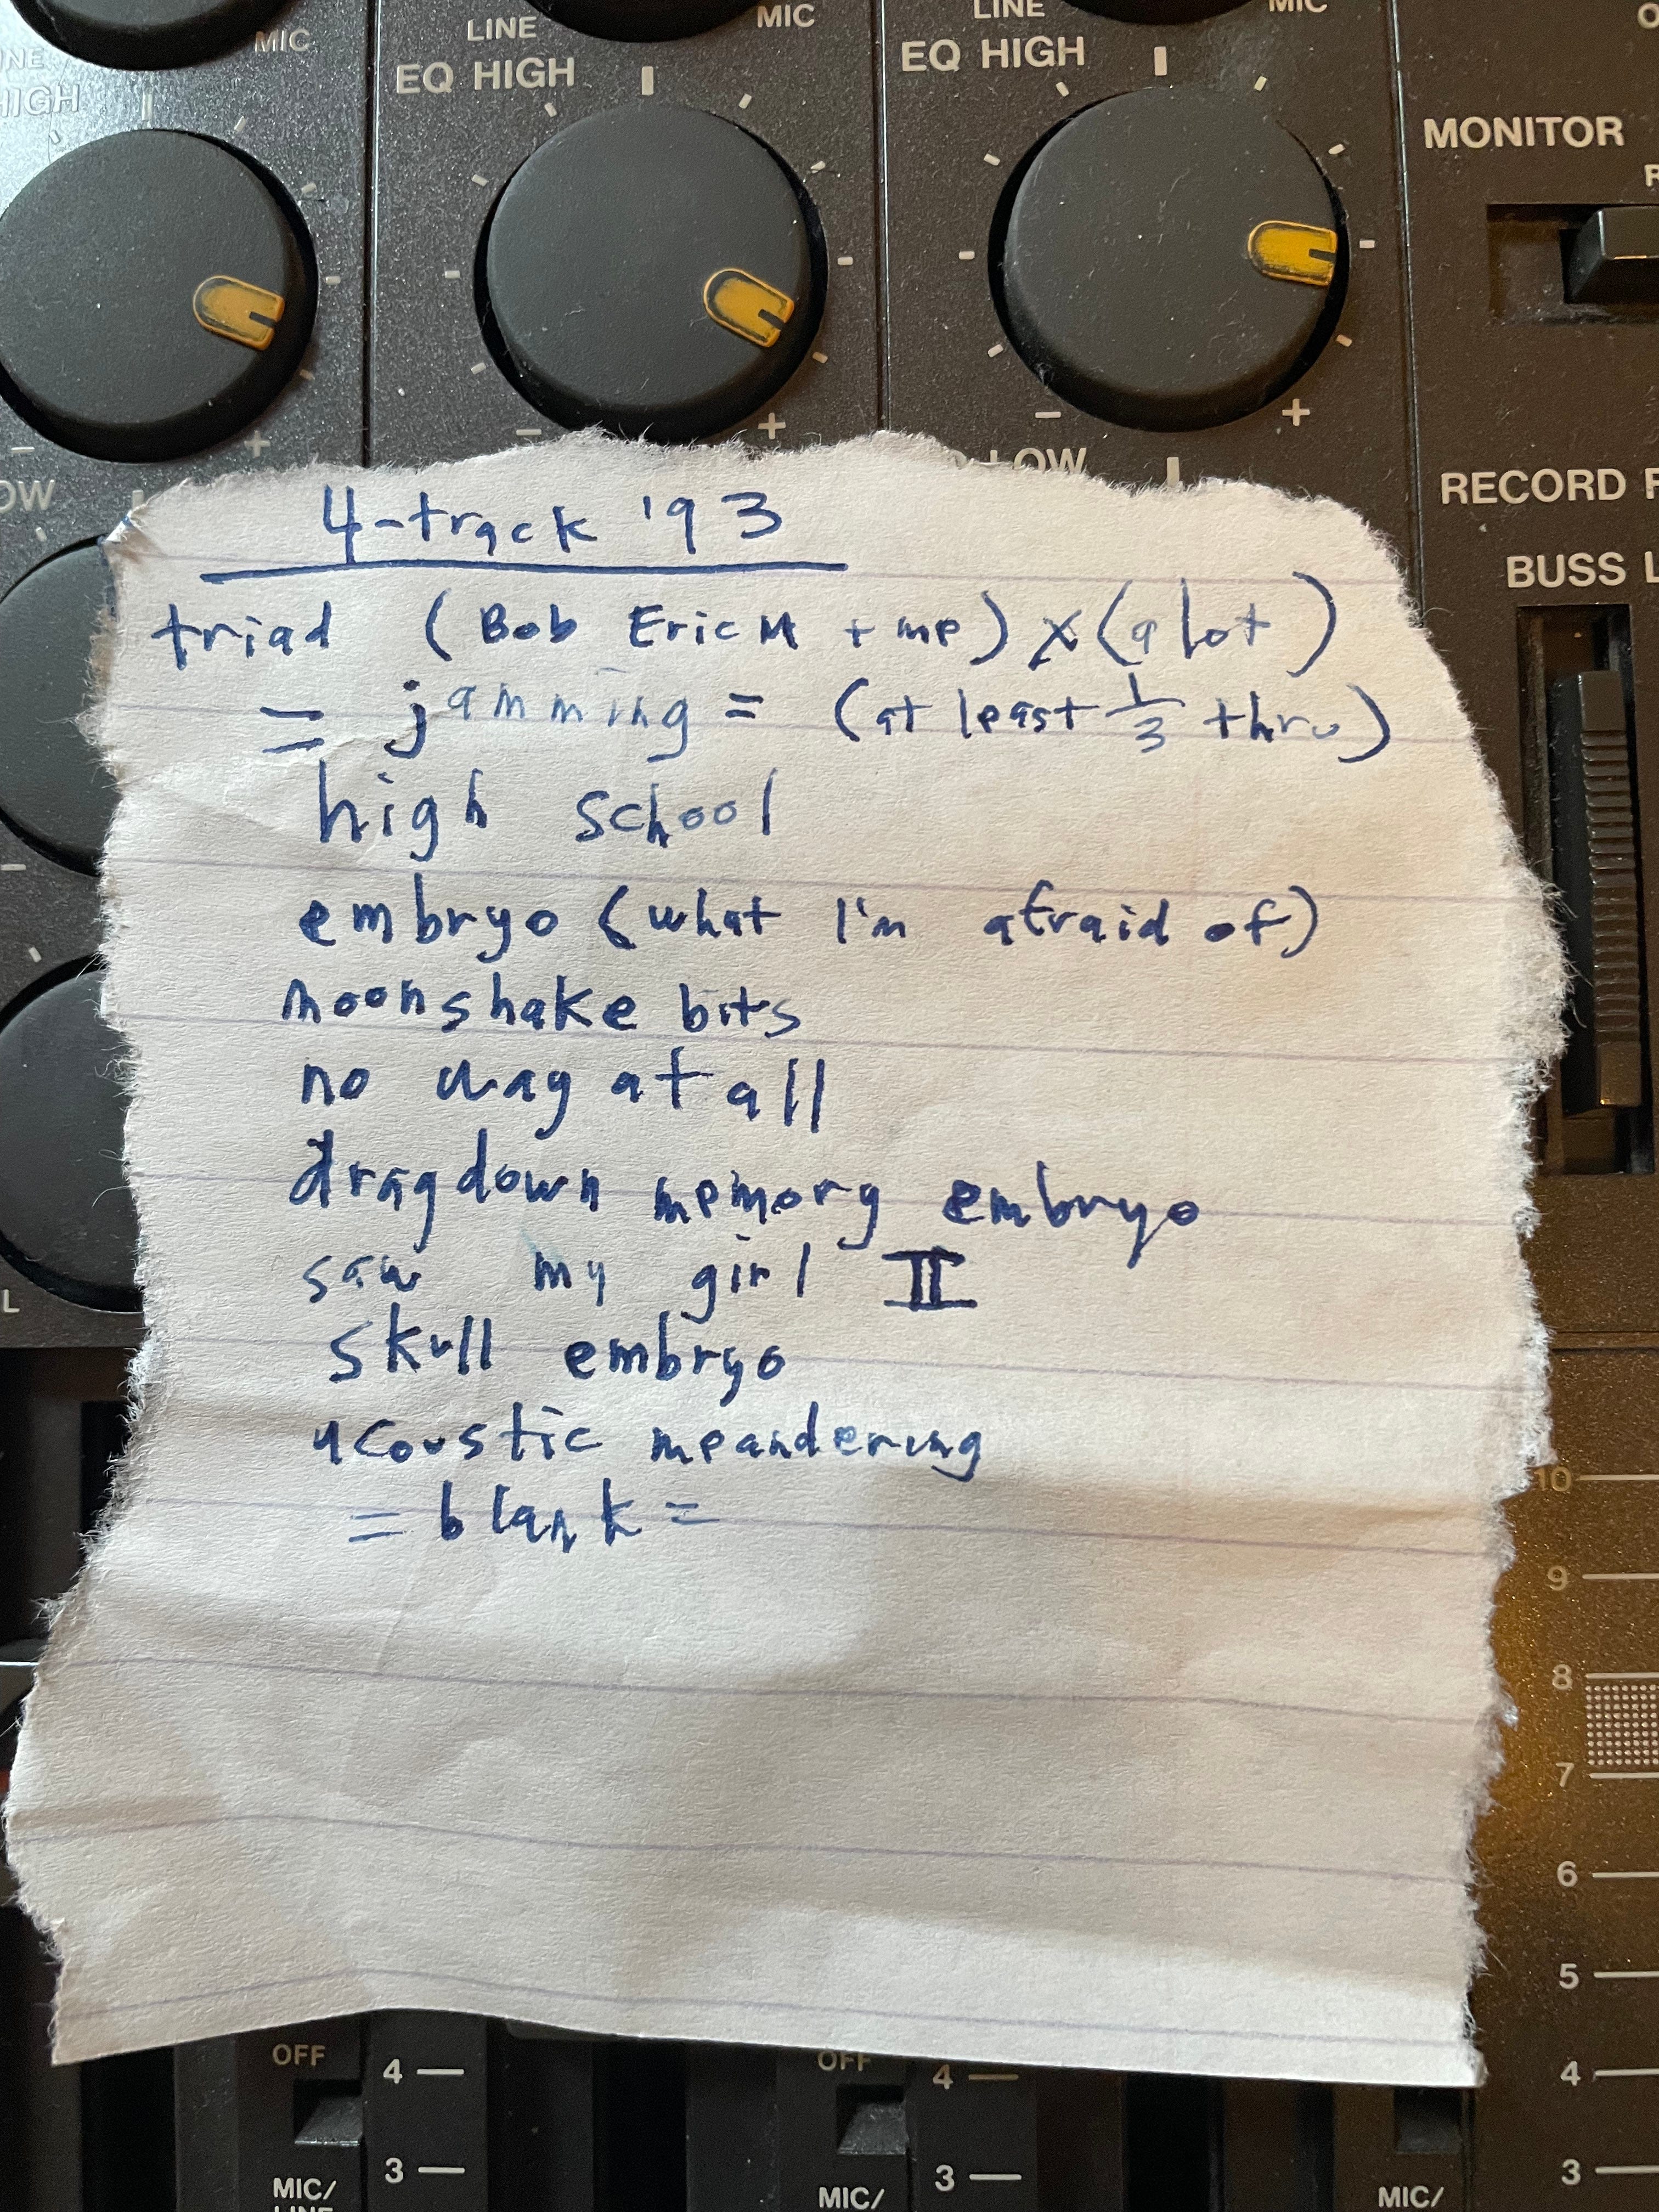 LINE MIC LINE MIC
MIC
EQ HIGH EQ HIGH
HIGH
MONITOR
- + - + - +
LOW
OW
RECORD
BUSS L
4-track '93
triad (Bob Eric M + me) x (a lot)
= jamming = (at least 1/3 thru)
high school
embryo (what I'm afraid of)
moonshake bits
no way at all
dragdown memory embryo
saw my girl II
skull embryo
acoustic meandering
= blank =
L
10
9
8
7
6
5
4
3
OFF OFF
4 4
3 3
MIC/ MIC/ MIC/
LINE